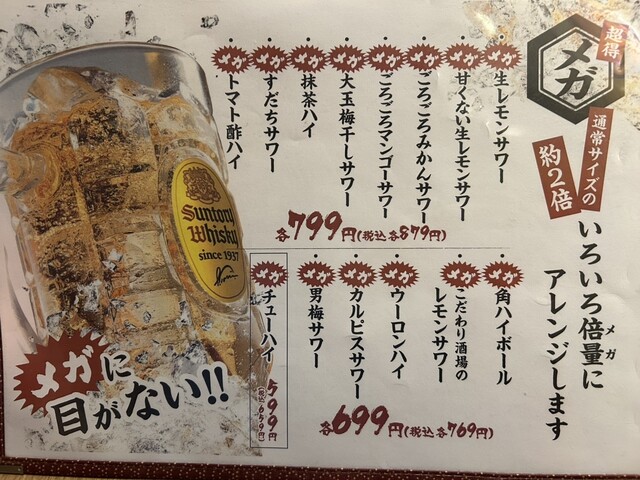 超得
メガ
通常サイズの
約2倍
いろいろ倍量に
メガ
アレンジします
メガ 生レモンサワー
メガ 甘くない生レモンサワー
メガ ごろごろみかんサワー
メガ ごろごろマンゴーサワー
メガ 大玉梅干しサワー
メガ 抹茶ハイ
メガ すだちサワー
メガ トマト酢ハイ
各799円(税込 各879円)
メガ 角ハイボール
メガ こだわり酒場の
レモンサワー
メガ ウーロンハイ
メガ カルピスサワー
メガ 男梅サワー
各699円(税込 各769円)
メガ チューハイ
599円
(税込 659円)
Suntory
Whisky
since 1937
メガに
目がない!!